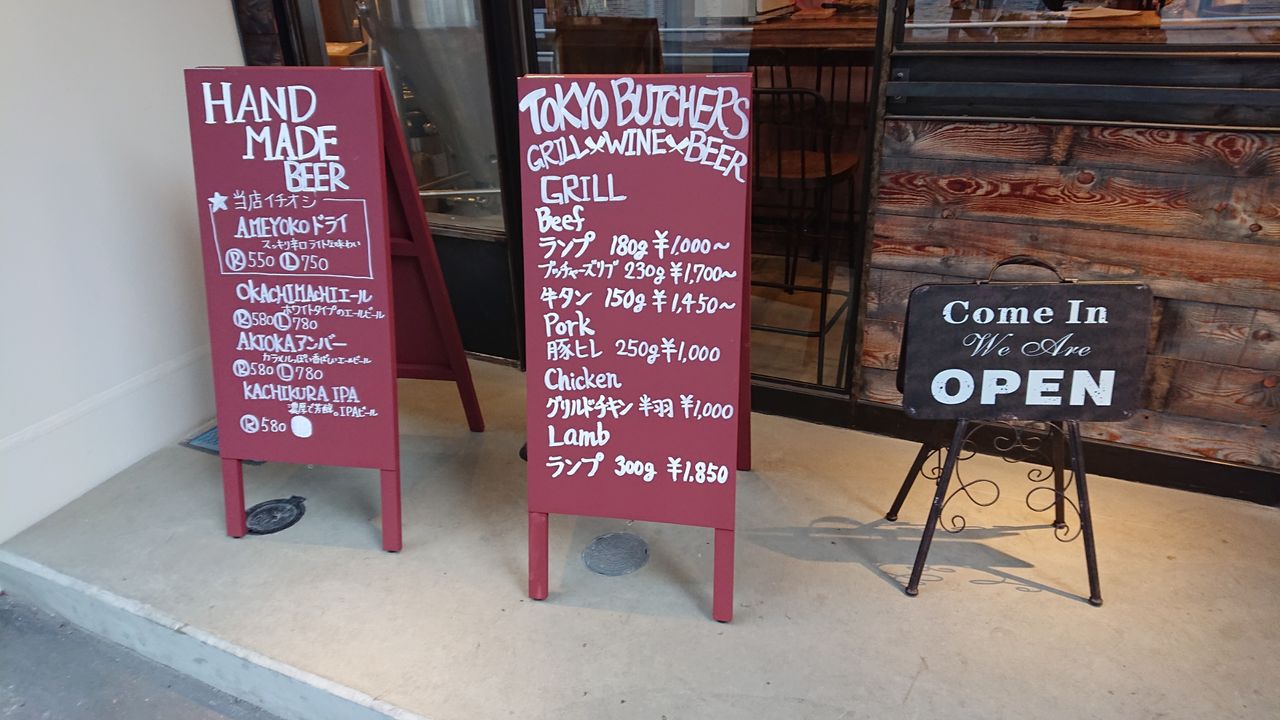 HAND
MADE
BEER
★当店イチオシ
AMEYOKOドライ
スッキリ辛口ライトな味わい
Ⓡ550 Ⓛ750
OKACHIMACHIエール
ホワイトタイプのエールビール
Ⓡ580 Ⓛ780
AKIOKAアンバー
カラメルっぽい香ばしいエールビール
Ⓡ580 Ⓛ780
KACHIKURA IPA
濃厚で芳醇。IPAビール
Ⓡ580
TOKYO BUTCHERS
GRILL×WINE×BEER
GRILL
Beef
ランプ 180g ¥1,000~
ブッチャーズリブ 230g ¥1,700~
牛タン 150g ¥1,450~
Pork
豚ヒレ 250g ¥1,000
Chicken
グリルドチキン 半羽 ¥1,000
Lamb
ランプ 300g ¥1.850
Come In
We Are
OPEN